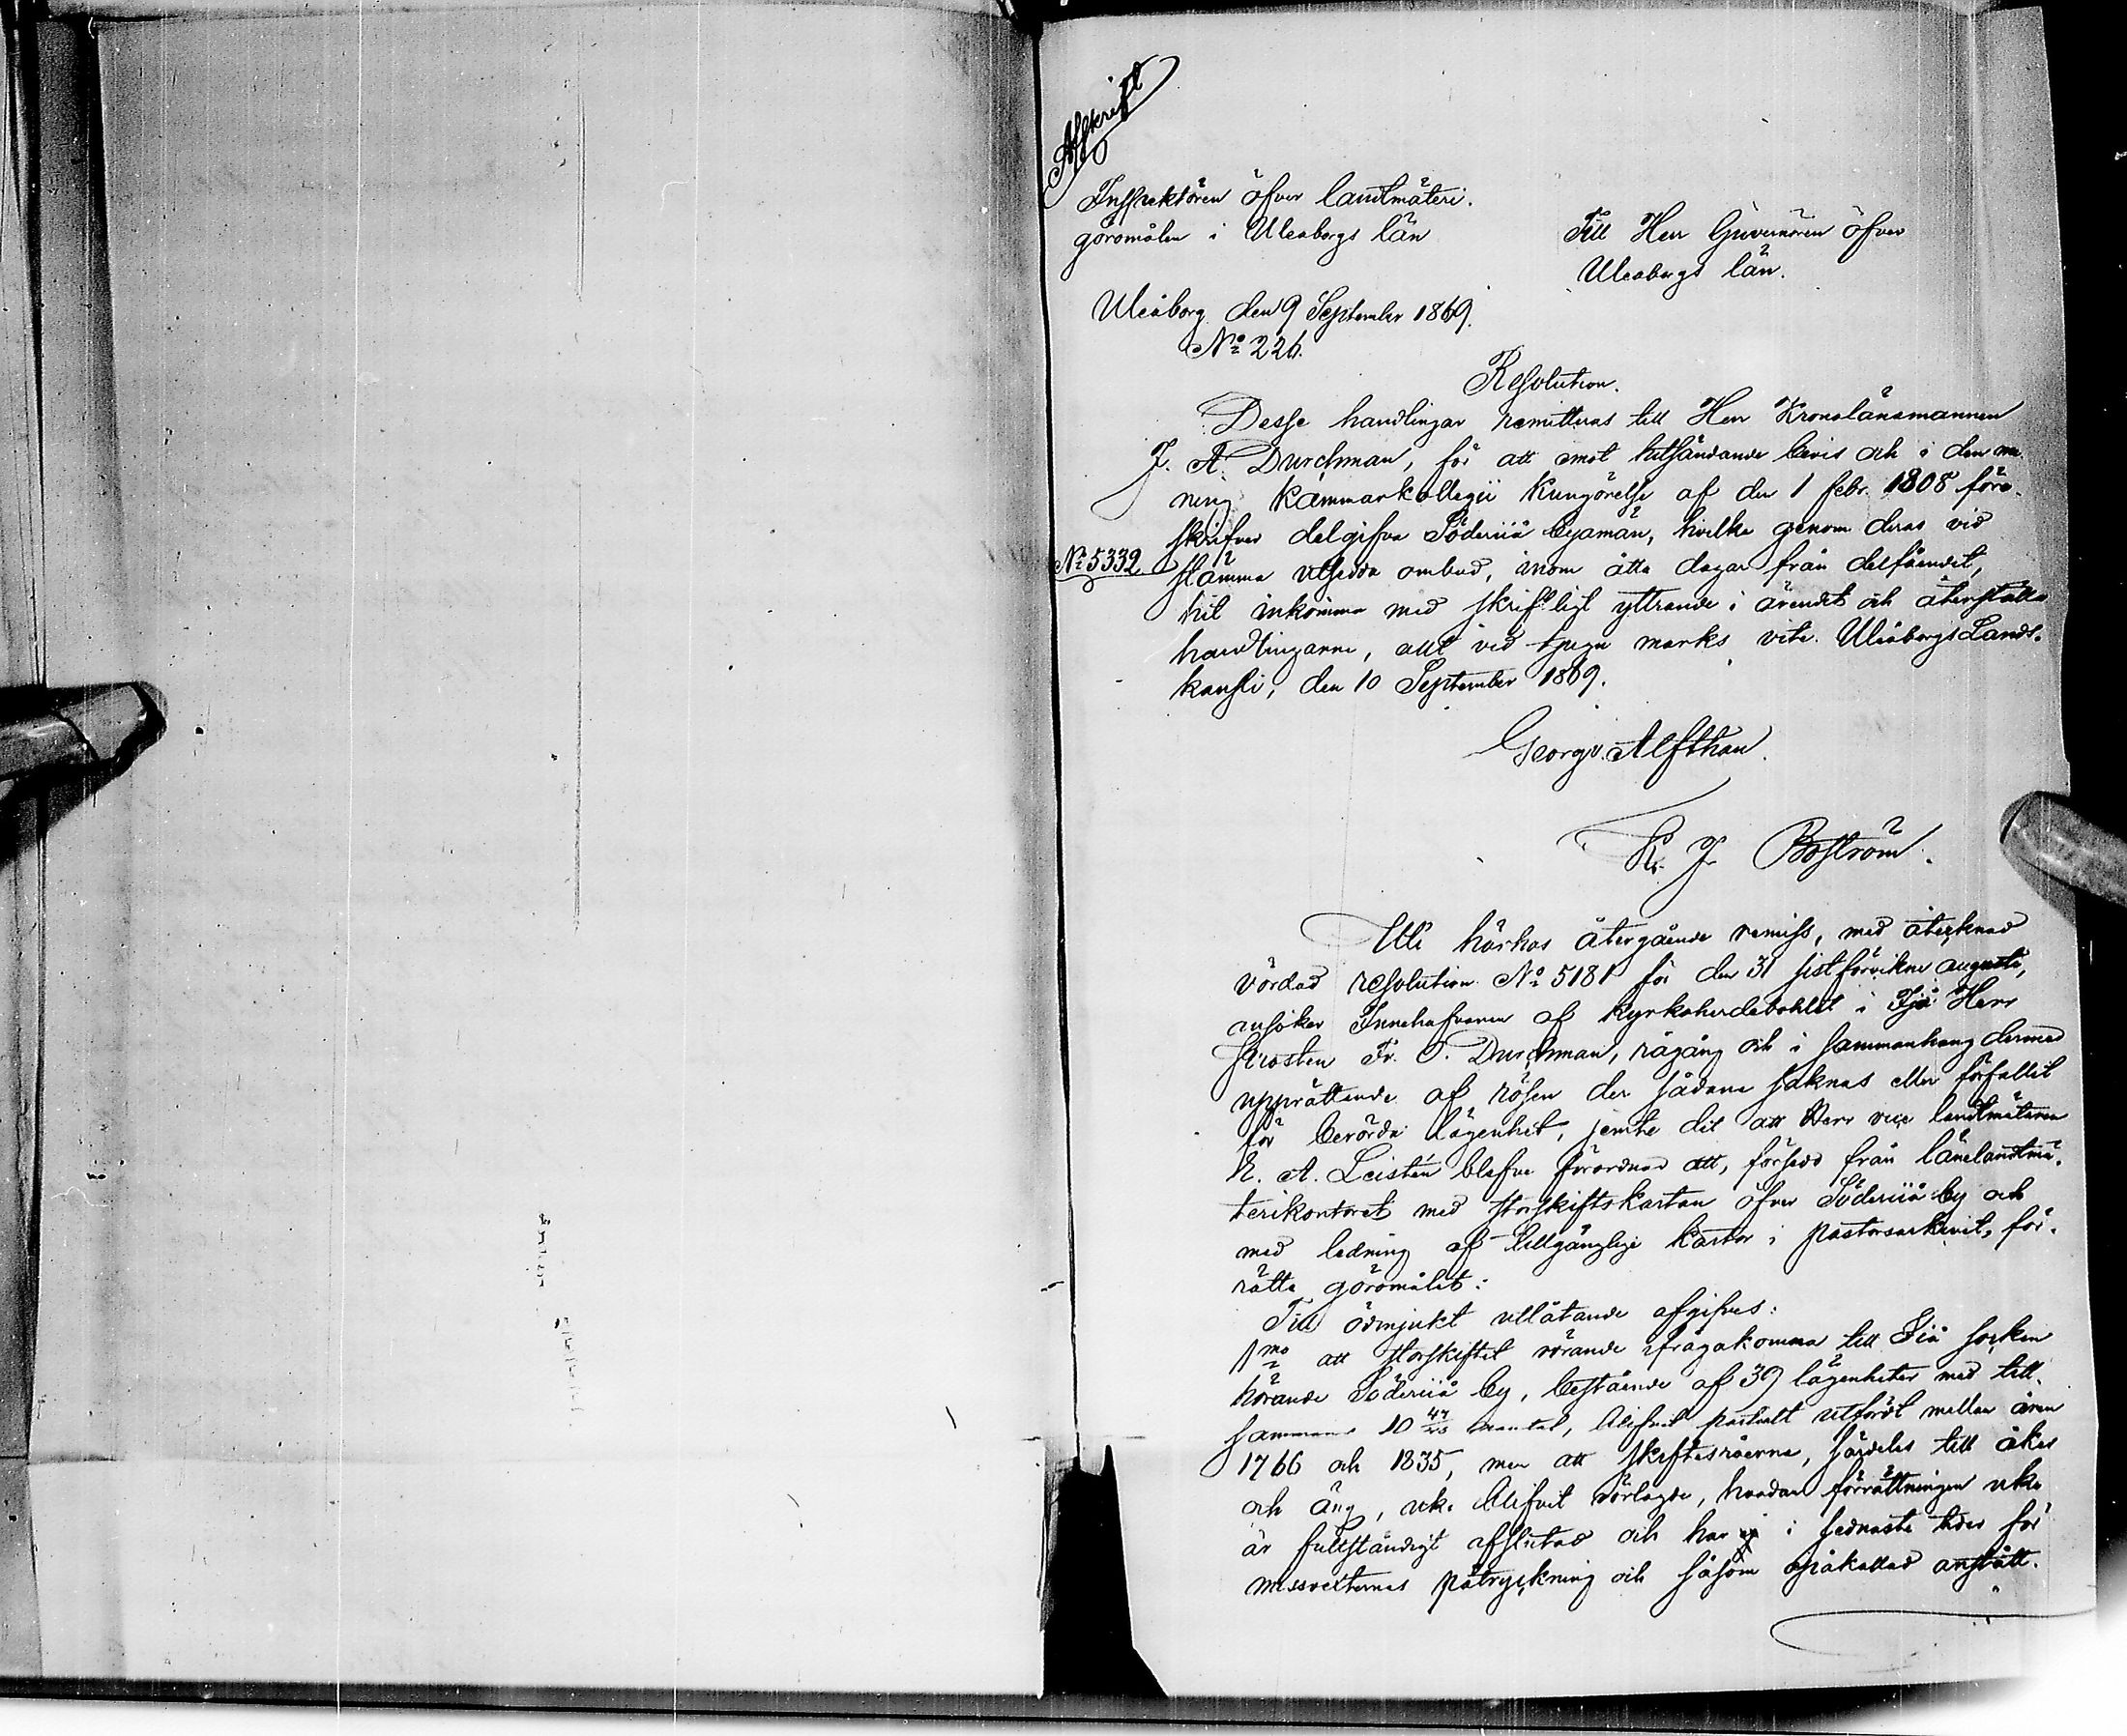 Afskrift
Inspektören öfver landtmäteri-
göromålen i Uleaborgs län
Till Herr Guvernören öfver
Uleaborgs län.
Uleåborg den 9 September 1869.
No 226.
Resolution.
Desse handlingar remitteras till Herr Kronolänsmannen
J. A. Durchman, för att emot hitsändande bevis och i den me-
ning Kammarkollegii Kungörelse af den 1 febr. 1808 före-
skrifver delgifva Söderiiå byamän, hvilka genom deras vid
No 5332
stämma utsedda ombud, inom åtta dagar från delfåendet,
hit inkomma med skriftligt yttrande i ärendet och återställa
handlingarne, allt vid tjugu marks vite. Uleåborgs Lands-
kansli, den 10 September 1869.
Georg v. Alfthan.
K. J. Boström.
Uti härhos återgående remiss, med åtecknad
vördad resolution No 5181 för den 31 sistförvikne augusti,
ansöker Innehafvaren af kyrkoherdebohlet i Ijå Herr
Prosten Fr. O. Durchman, rågång och i sammanhang dermed
upprättande af rösen der sådane saknas eller förfallit
för berörda lägenhet, jemte det att Herr vice landtmätaren
K. A. Leistén blefve förordnad att, försedd från länelandtmä-
terikontoret med storskiftskartan öfver Söderiiå by och
med ledning af tillgänglige kartor i pastorsarkivet, för-
rätta göromålet:
Till ödmjukt utlåtande afgifves:
1mo att storskiftet rörande ifrågakomna till Iiå socken
hörande Söderiiå by, bestående af 39 lägenheter med till-
sammans 10 mantal, blifvit partielt utfördt mellan åren
1766 och 1835, men att skiftesråerne, särdeles till åker
och äng, icke blifvit rörlagde, hvadan förrättningen icke
är fullständigt afslutad och har ej i sednaste tider för
missvexternas påtryckning och såsom opåkallad anstått.